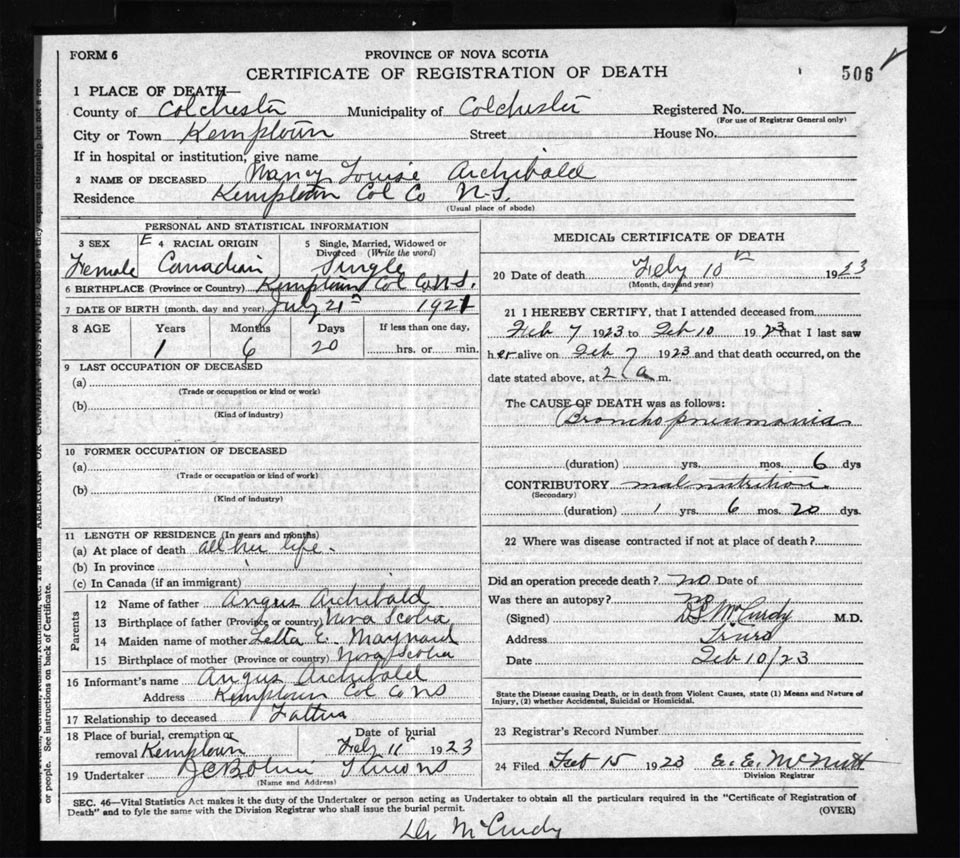 FORM 6
PROVINCE OF NOVA SCOTIA
CERTIFICATE OF REGISTRATION OF DEATH
506
1 PLACE OF DEATH—
County of Colchester Municipality of Colchester Registered No.
(For use of Registrar General only)
City or Town Kemptown Street House No.
If in hospital or institution, give name
2 NAME OF DECEASED Nancy Louise Archibald
Residence Kemptown Col Co N.S.
(Usual place of abode)
PERSONAL AND STATISTICAL INFORMATION
3 SEX E 4 RACIAL ORIGIN 5 Single, Married, Widowed or Divorced (Write the word)
Female Canadian Single
6 BIRTHPLACE (Province or Country) Kemptown Col Co N.S.
7 DATE OF BIRTH (month, day and year) July 21st 1921
8 AGE Years Months Days If less than one day,
1 6 20 hrs. or min.
9 LAST OCCUPATION OF DECEASED
(a)
(Trade or occupation or kind or work)
(b)
(Kind of industry)
10 FORMER OCCUPATION OF DECEASED
(a)
(Trade or occupation or kind of work)
(b)
(Kind of industry)
11 LENGTH OF RESIDENCE (In years and months)
(a) At place of death all her life.
(b) In province
(c) In Canada (if an immigrant)
Parents
12 Name of father Angus Archibald
13 Birthplace of father (Province or country) Nova Scotia
14 Maiden name of mother Letta E. Maynard
15 Birthplace of mother (Province or country) Nova Scotia
16 Informant's name Angus Archibald
Address Kemptown Col Co NS
17 Relationship to deceased Father
18 Place of burial, cremation or removal Kemptown
Date of burial Feby 11th 1923
19 Undertaker Truro NS
(Name and Address)
MEDICAL CERTIFICATE OF DEATH
20 Date of death Feby 10th 1923
(Month, day and year)
21 I HEREBY CERTIFY, that I attended deceased from
Feb 7 1923 to Feb 10 1923 that I last saw
her alive on Feb 7 1923 and that death occurred, on the
date stated above, at 2 a m.
The CAUSE OF DEATH was as follows:
Broncho pneumonia
(duration) yrs. mos. 6 dys
CONTRIBUTORY malnutrition.
(Secondary)
(duration) 1 yrs. 6 mos. 20 dys.
22 Where was disease contracted if not at place of death?
Did an operation precede death? no Date of
Was there an autopsy? no
(Signed) D S McCurdy M.D.
Address Truro
Date Feb 10/23
State the Disease causing Death, or in death from Violent Causes, state (1) Means and Nature of
Injury, (2) whether Accidental, Suicidal or Homicidal.
23 Registrar's Record Number
24 Filed Feb 15 1923 E. E. McNutt
Division Registrar
SEC. 46—Vital Statistics Act makes it the duty of the Undertaker or person acting as Undertaker to obtain all the particulars required in the "Certificate of Registration of
Death" and to fyle the same with the Division Registrar who shall issue the burial permit. (OVER)
Dr McCurdy
or people. See instructions on back of Certificate.